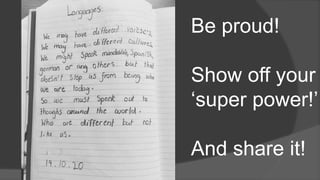 Languages:
We may have different voices,
We may have different cultures
We might speak mandarin, Spanish,
german or any others. but that
doesn't stop us from being who
we are today.
So we must speak out to
thoughs around the world.
Who are different but not
like us.
14.10.20
Be proud!
Show off your
‘super power!’
And share it!